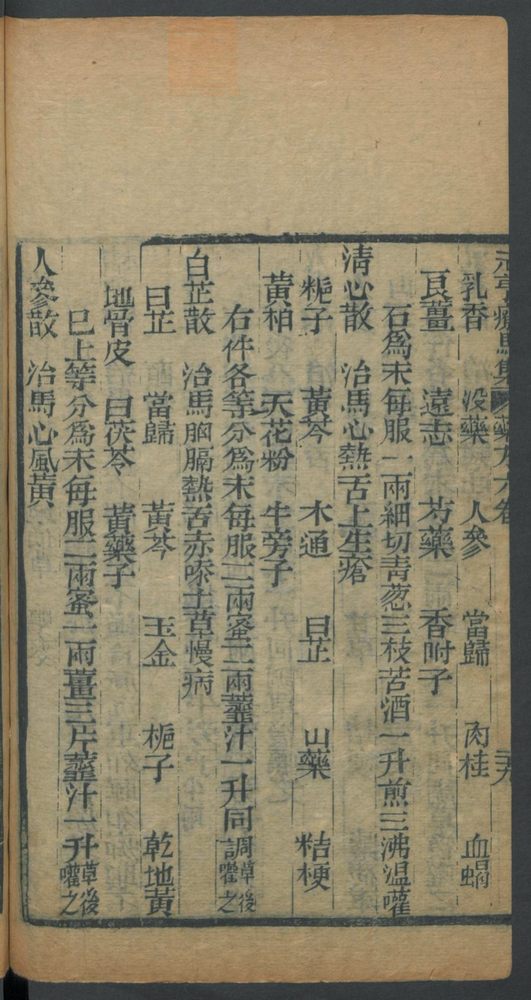 元亨療馬集 藥方六卷
乳香 没藥 人參 當歸 肉桂 血蝎
良薑 遠志 芍藥 香附子
右爲末每服一兩細切青葱三枝苦酒一升煎三沸温嚾
清心散 治馬心熱舌上生瘡
梔子 黃芩 木通 白芷 山藥 桔梗
黃柏 天花粉 牛旁子
右件各等分爲末每服二兩蜜二兩虀汁一升同調草後嚾之
白芷散 治馬胸膈熱舌赤喍土草慢病
白芷 當歸 黃芩 玉金 梔子 乾地黃
地骨皮 白茯苓 黃藥子
已上等分爲末每服二兩蜜二兩薑三片虀汁一升草後嚾之
人參散 治馬心風黃